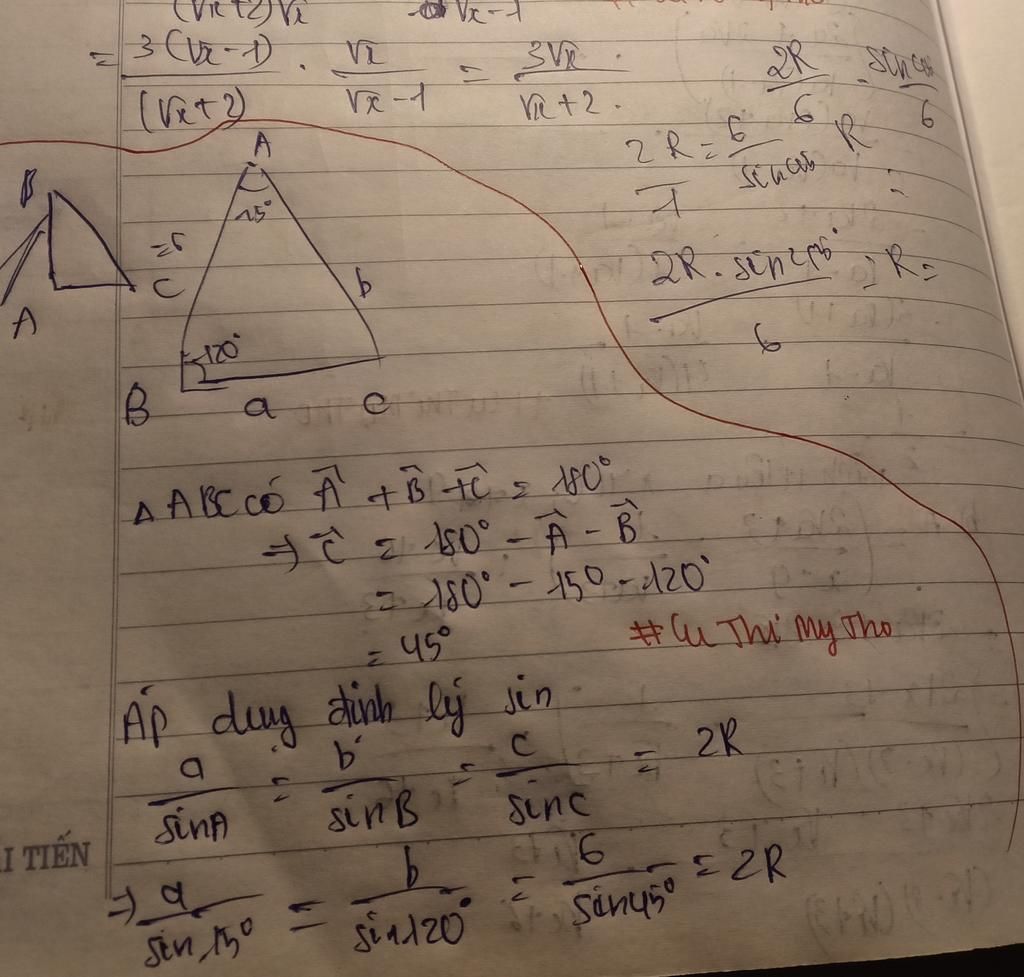 (√x+2)√x √x-1
= 3(√x-1)/(√x+2) . √x/(√x-1) = 3√x/(√x+2).
2R/6
2R/1 = 6/ R =
2R . sin45°/6 = R =
A
15°
B
A
C
b
120°
B a c
△ABC có A⃗ + B⃗ + C⃗ = 180°
=> C⃗ = 180° - A⃗ - B⃗.
= 180° - 150 - 120°
= 45°
#Cu Thi My Tho
Áp dung định lý sin
a/sinA = b/sinB = c/sinC = 2R
ẢI TIẾN
=> a/sin15° = b/sin120° = 6/sin45° = 2R